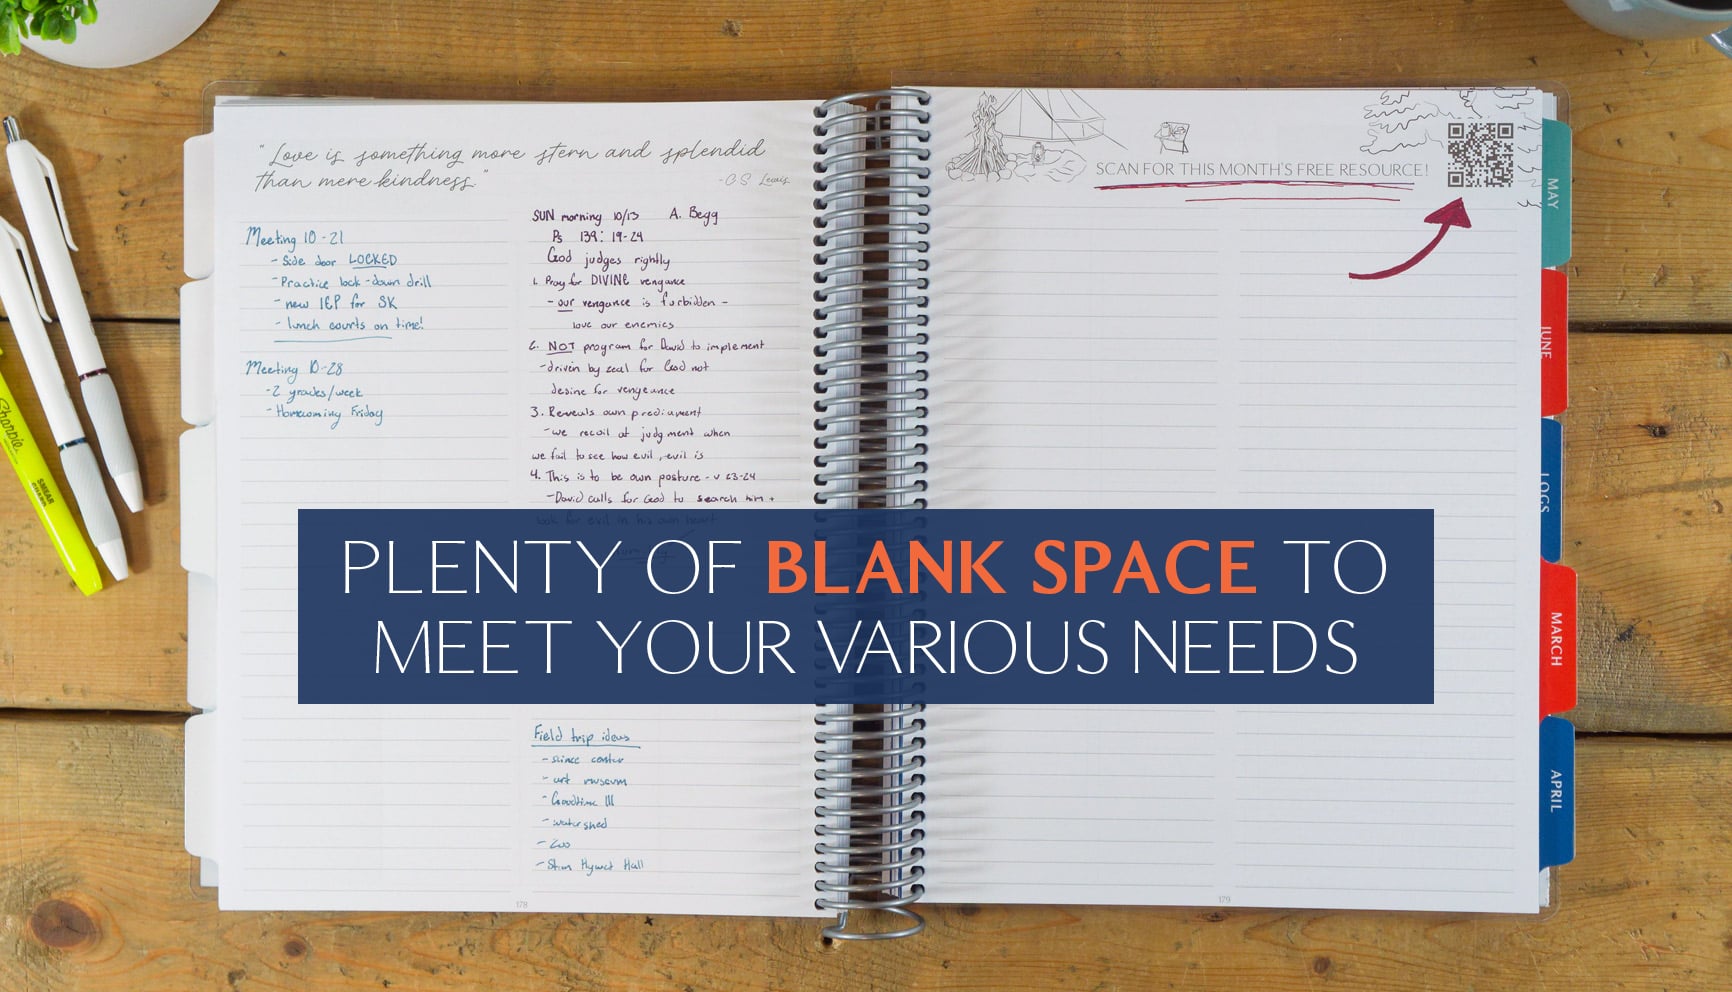 "Love is something more stern and splendid
than mere kindness."
-C.S. Lewis
Meeting 10-21
- Side door LOCKED
- Practice lock-down drill
- new IEP for SK
- lunch courts on time!
Meeting 10-28
- 2 grades/week
- Homecoming Friday
SUN morning 10/13 A. Begg
Ps 139: 19-24
God judges rightly
1. Pray for DIVINE vengance
- our vengance is forbidden -
love our enemies
2. NOT program for David to implement
- driven by zeal for God not
desire for vengeance
3. Reveals own prediument
- we recoil at judgment when
we fail to see how evil, evil is
4. This is to be own posture - v 23-24
- David calls for God to search him +
look for evil in his own heart
Field trip ideas
- science center
- art museum
- Goodtime III
- watershed
- Zoo
- Stan Hywet Hall
178
SCAN FOR THIS MONTH'S FREE RESOURCE!
179
MAY
JUNE
LOGS
MARCH
APRIL
Sharpie
SMEAR
GUARD
PLENTY OF BLANK SPACE TO
MEET YOUR VARIOUS NEEDS